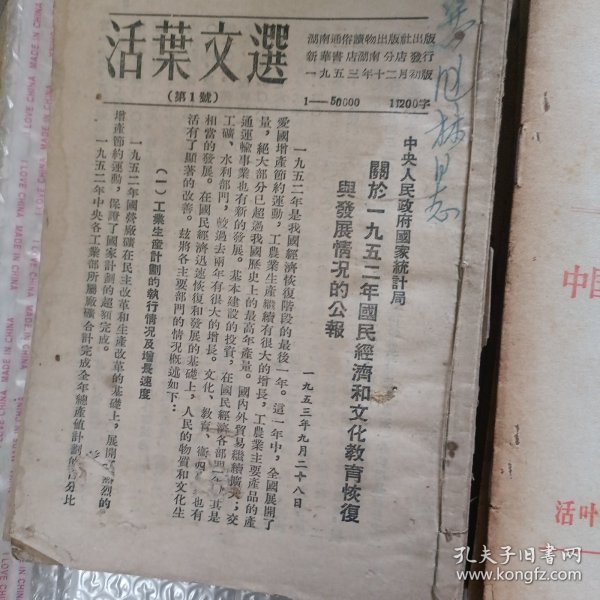 活葉文選
(第1號)
湖南通俗讀物出版社出版
新華書店湖南分店發行
一九五三年十二月初版
1—50000 11200字
中央人民政府國家統計局
關於一九五二年國民經濟和文化教育恢復
與發展情况的公報
一九五三年九月二十八日
一九五二年是我國經濟恢復階段的最後一年。這一年中,全國展開了
愛國增產節約運動,工農業生產繼續有很大的增長,工農業主要產品的產
量,絕大部分已超過我國歷史上的最高年產量。國內外貿易繼續擴大;交
通運輸事業也有新的發展。基本建設的投資,在國民經濟各部門
其是
工礦、水利部門,較過去兩年有很大的增長。文化、教育、衛
也有
相當的發展。在國民經濟迅速恢復和發展的基礎上,人民的物質和文化生
活有了顯著的改善。兹將各主要部門的情况概述如下:
(一)工業生產計劃的執行情况及增長速度
一九五二年國營廠礦在民主改革和生產改革的基礎上,展開
熱烈的
增產節約運動,保證了國家計劃的超額完成。
一九五二年中央各工業部所屬廠礦合計完成全年總產值計劃的百分比
中国
活叶
I LOVE CHINA MADE IN CHINA
孔夫子旧书网
www.kongfz.com